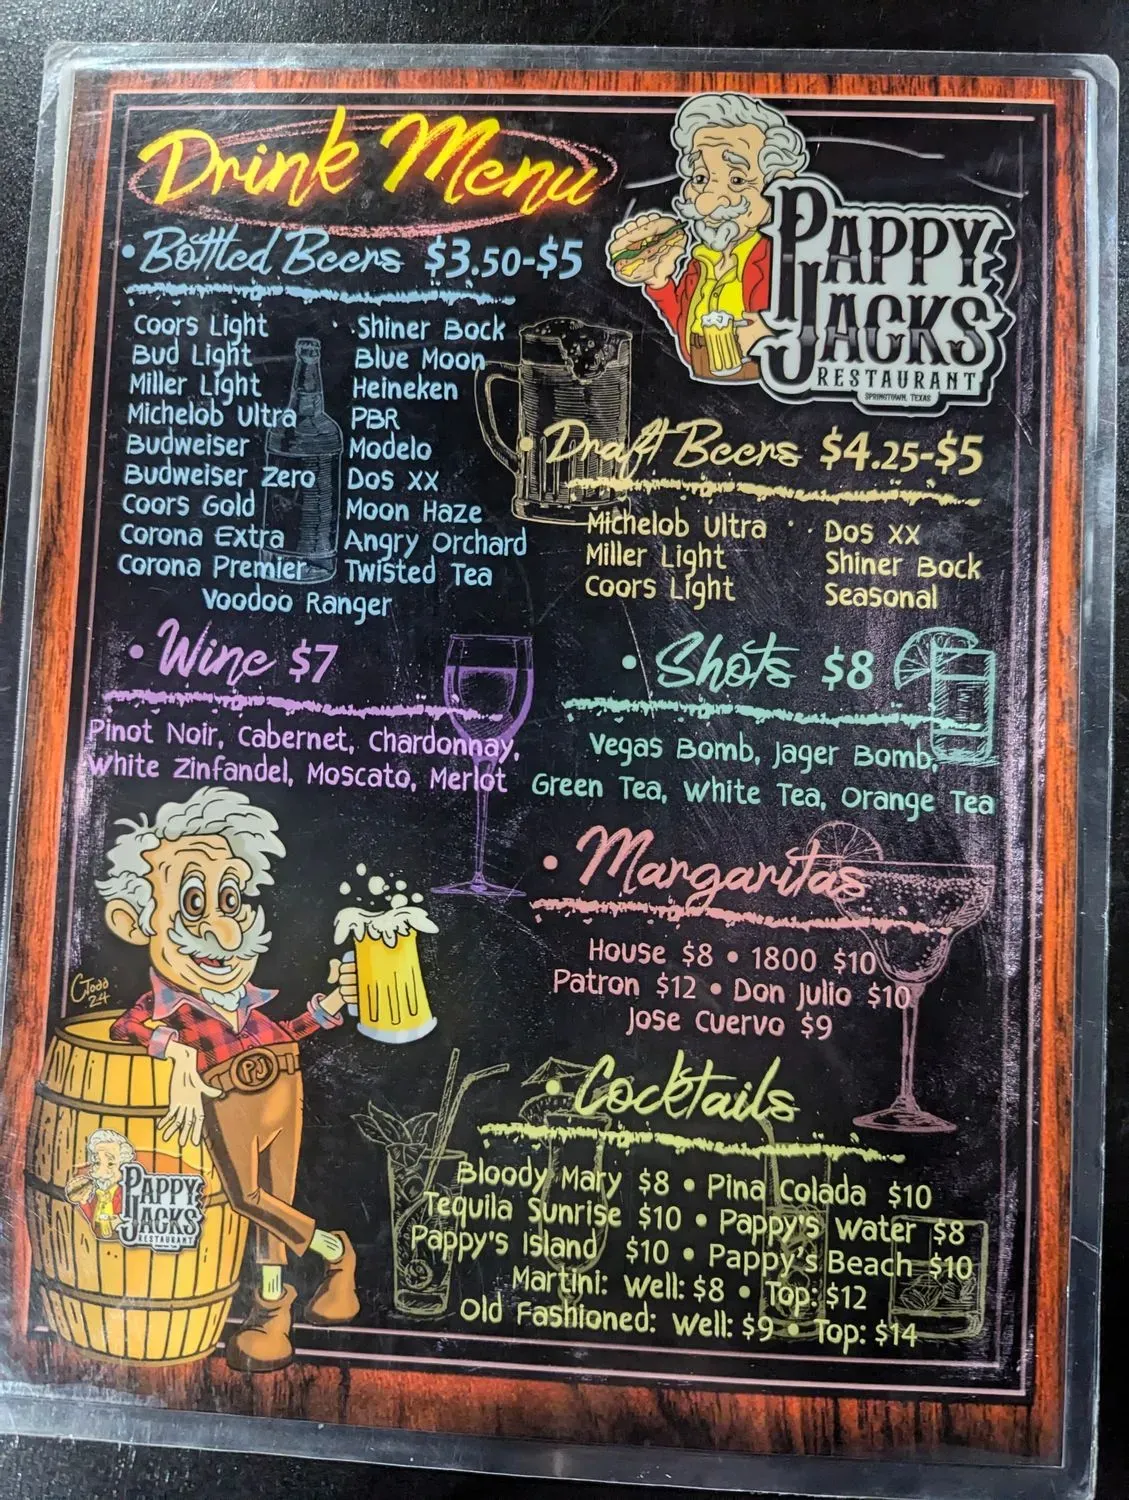 Drink Menu
PAPPY
JACKS
RESTAURANT
SPRINGTOWN, TEXAS
• Bottled Beers $3.50-$5
Coors Light
Bud Light
Miller Light
Michelob Ultra
Budweiser
Budweiser Zero
Coors Gold
Corona Extra
Corona Premier
Shiner Bock
Blue Moon
Heineken
PBR
Modelo
Dos XX
Moon Haze
Angry Orchard
Twisted Tea
Voodoo Ranger
• Draft Beers $4.25-$5
Michelob Ultra
Miller Light
Coors Light
Dos XX
Shiner Bock
Seasonal
• Wine $7
Pinot Noir, Cabernet, Chardonnay,
White Zinfandel, Moscato, Merlot
• Shots $8
Vegas Bomb, Jager Bomb,
Green Tea, White Tea, Orange Tea
• Margaritas
House $8 • 1800 $10
Patron $12 • Don Julio $10
Jose Cuervo $9
• Cocktails
Bloody Mary $8 • Pina Colada $10
Tequila Sunrise $10 • Pappy's Water $8
Pappy's Island $10 • Pappy's Beach $10
Martini: Well: $8 • Top: $12
Old Fashioned: Well: $9 • Top: $14
CTodd
24
PJ
PAPPY
JACKS
RESTAURANT